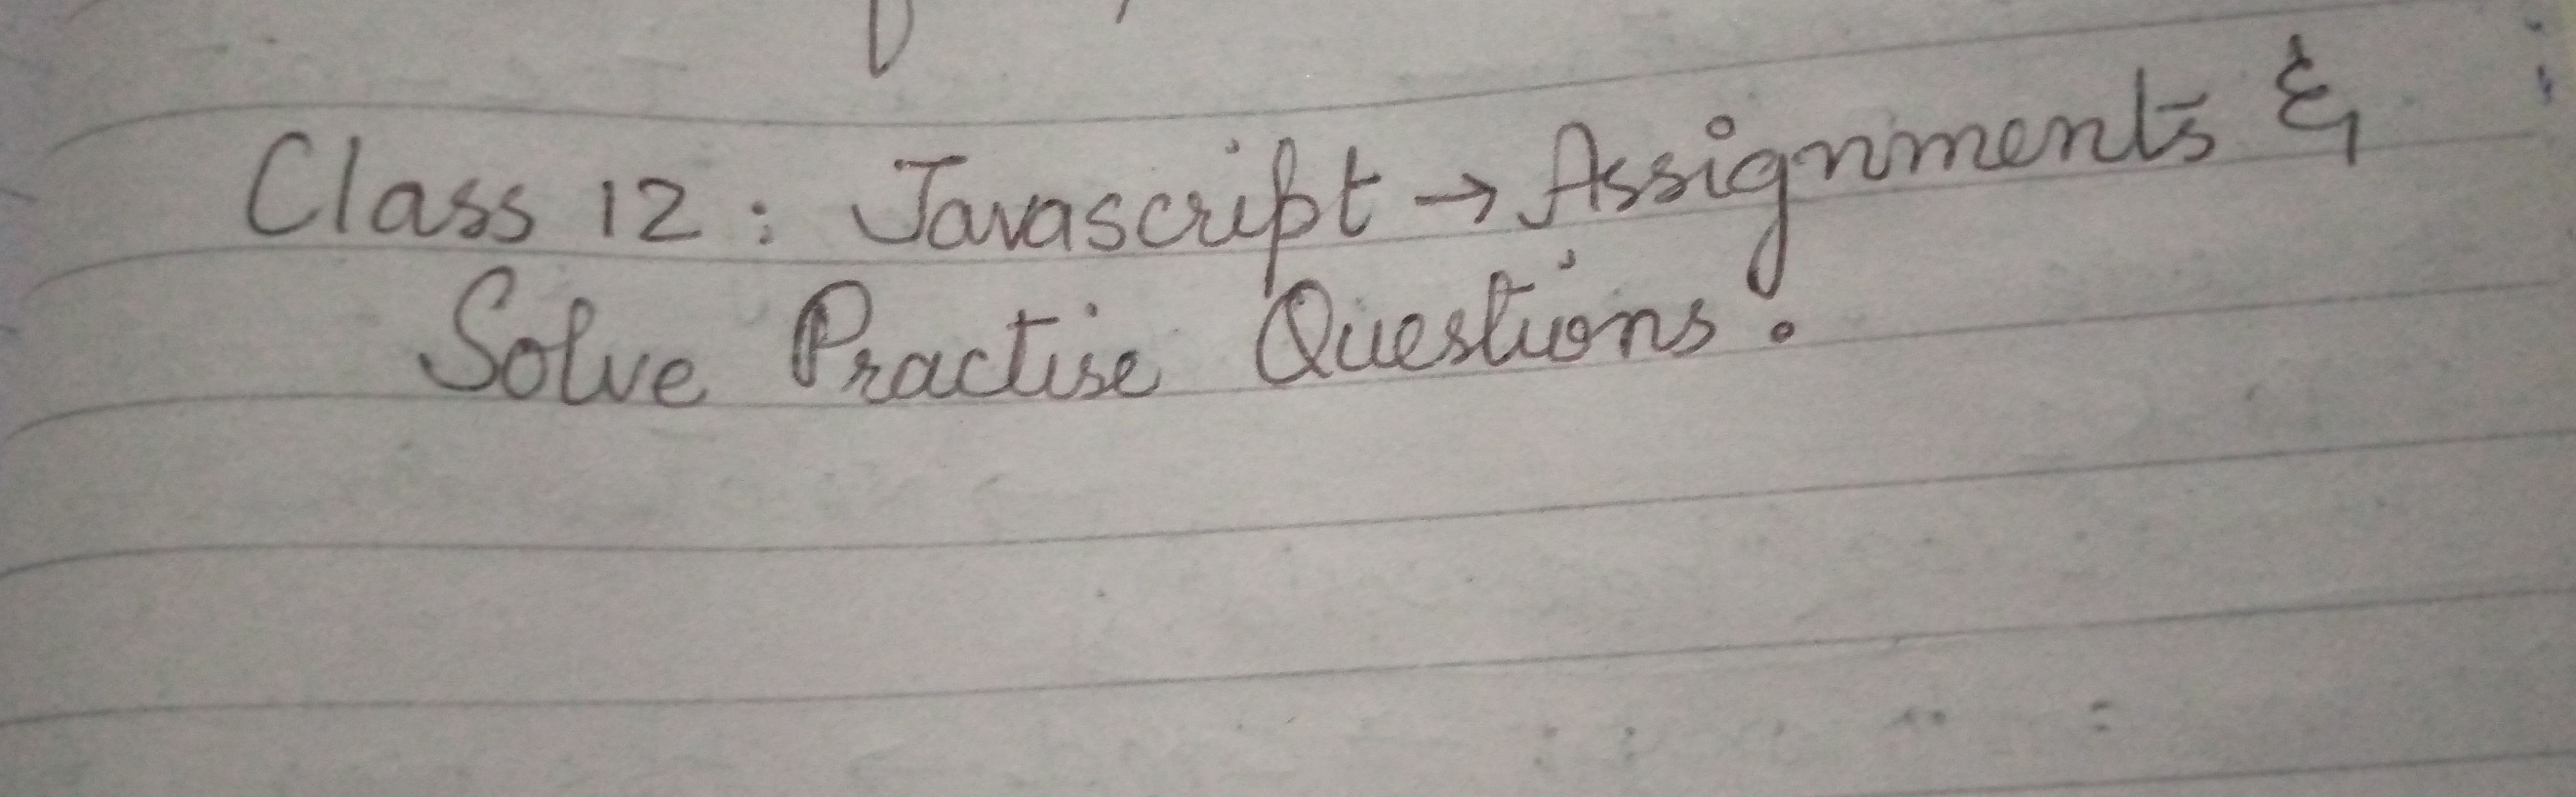 Class 12 : Javascript → Assignments &
Solve Practise Questions.